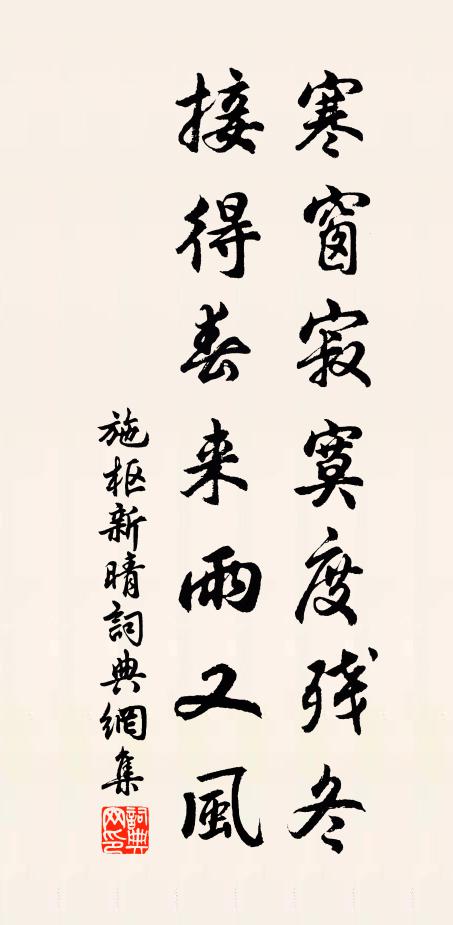 寒窗寂寞度残冬
接得春来雨又風
施枢新晴詞典網集
詞典網印